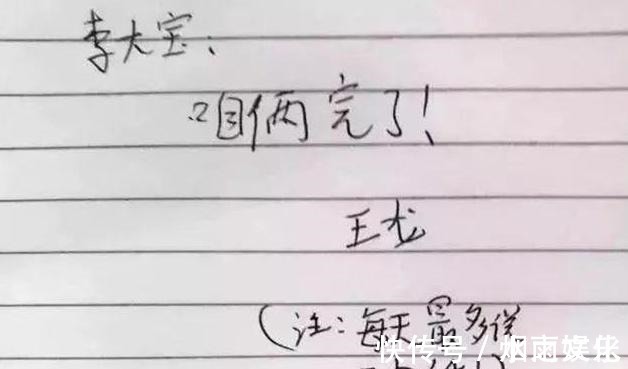 李大宝:
咱俩完了!
王龙
(注:每天最多送
快传号/烟雨娱乐